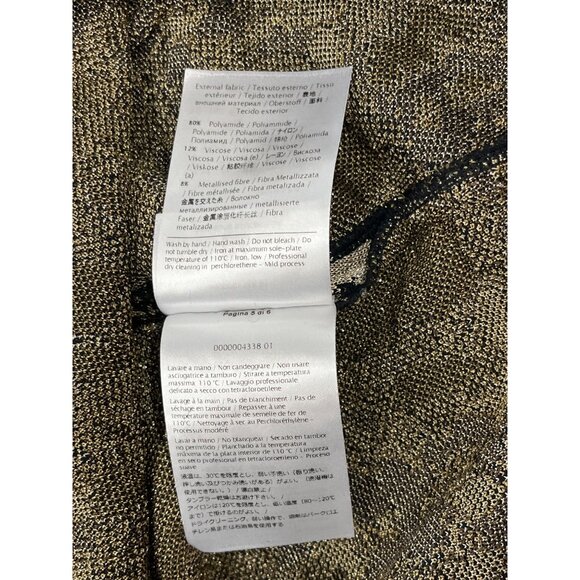 External fabric / Tessuto esterno / Tissu
extérieur / Tejido exterior / 表地 /
внешний материал / Oberstoff / 面料 /
Tecido exterior
80% Polyamide / Poliammide /
Polyamide / Poliamida / ナイロン /
Полиамид / Polyamid / 锦纶 / Poliamida
12% Viscose / Viscosa / Viscose /
Viscosa / Viscosa (e) / レーヨン / Вискоза
/ Viskose / 粘胶纤维 / Viscose / Viscosa
(a)
8% Metallised fibre / Fibra Metallizzata
/ Fibre métallisée / Fibra metalizada /
金属を交えた糸 / Волокно
металлизированные / metallisierte
Faser / 金属涂层化纤长丝 / Fibra
metalizada
Wash by hand / Hand wash / Do not bleach / Do
not tumble dry / Iron at maximum sole-plate
temperature of 110°C / Iron, low / Professional
dry cleaning in perchlorethene - Mild process
Pagina 5 di 6
0000004338 01
Lavare a mano / Non candeggiare / Non usare
asciugatrice a tamburo / Stirare a temperatura
massima 110 °C / Lavaggio professionale
delicato a secco con tetracloroetilene
Lavage à la main / Pas de blanchiment / Pas de
séchage en tambour / Repasser à une
température maximale de semelle de fer de
110°C / Nettoyage à sec au Perchloréthylène -
Processus modéré
Lavar a mano / No blanquear / Secado en tambor
no permitido / Planchado a la temperatura
máxima de la placa interior de 110°C / Limpieza
en seco profesional en tetracloroetileno - Proceso
suave
液温は、30℃を限度とし、弱い手洗い（振り洗い、
押し洗い及びつかみ洗いがある）がよい。（洗濯機は
使用できない。） / 漂白禁止 /
タンブラー乾燥はお避け下さい。
アイロンは120℃を限度とし、低い温度（80～120℃
まで）で掛けるのがよい。 /
ドライクリーニング、弱い操作で、溶剤はパークロエ
チレン系または石油系を使用する